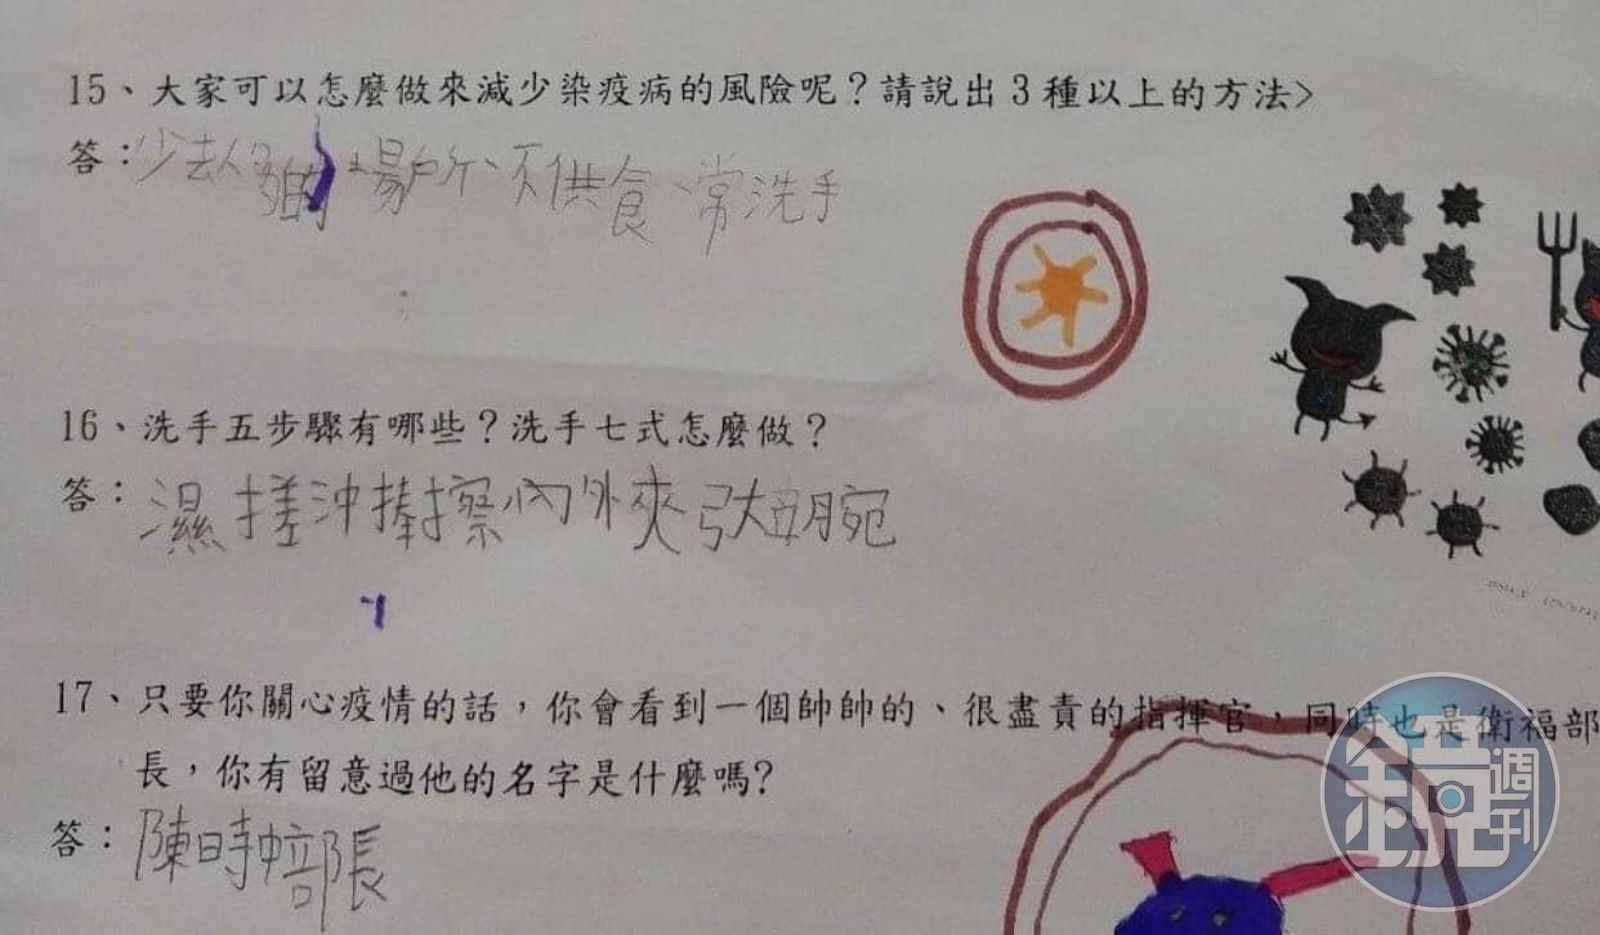 15、大家可以怎麼做來減少染疫病的風險呢？請說出3種以上的方法>
答：少去人多的場所、不供食、常洗手
16、洗手五步驟有哪些？洗手七式怎麼做？
答：濕搓沖捧擦內外夾弓大立腕
17、只要你關心疫情的話，你會看到一個帥帥的、很盡責的指揮官，同時也是衛福部
長，你有留意過他的名字是什麼嗎?
答：陳時中部長
鏡週刊